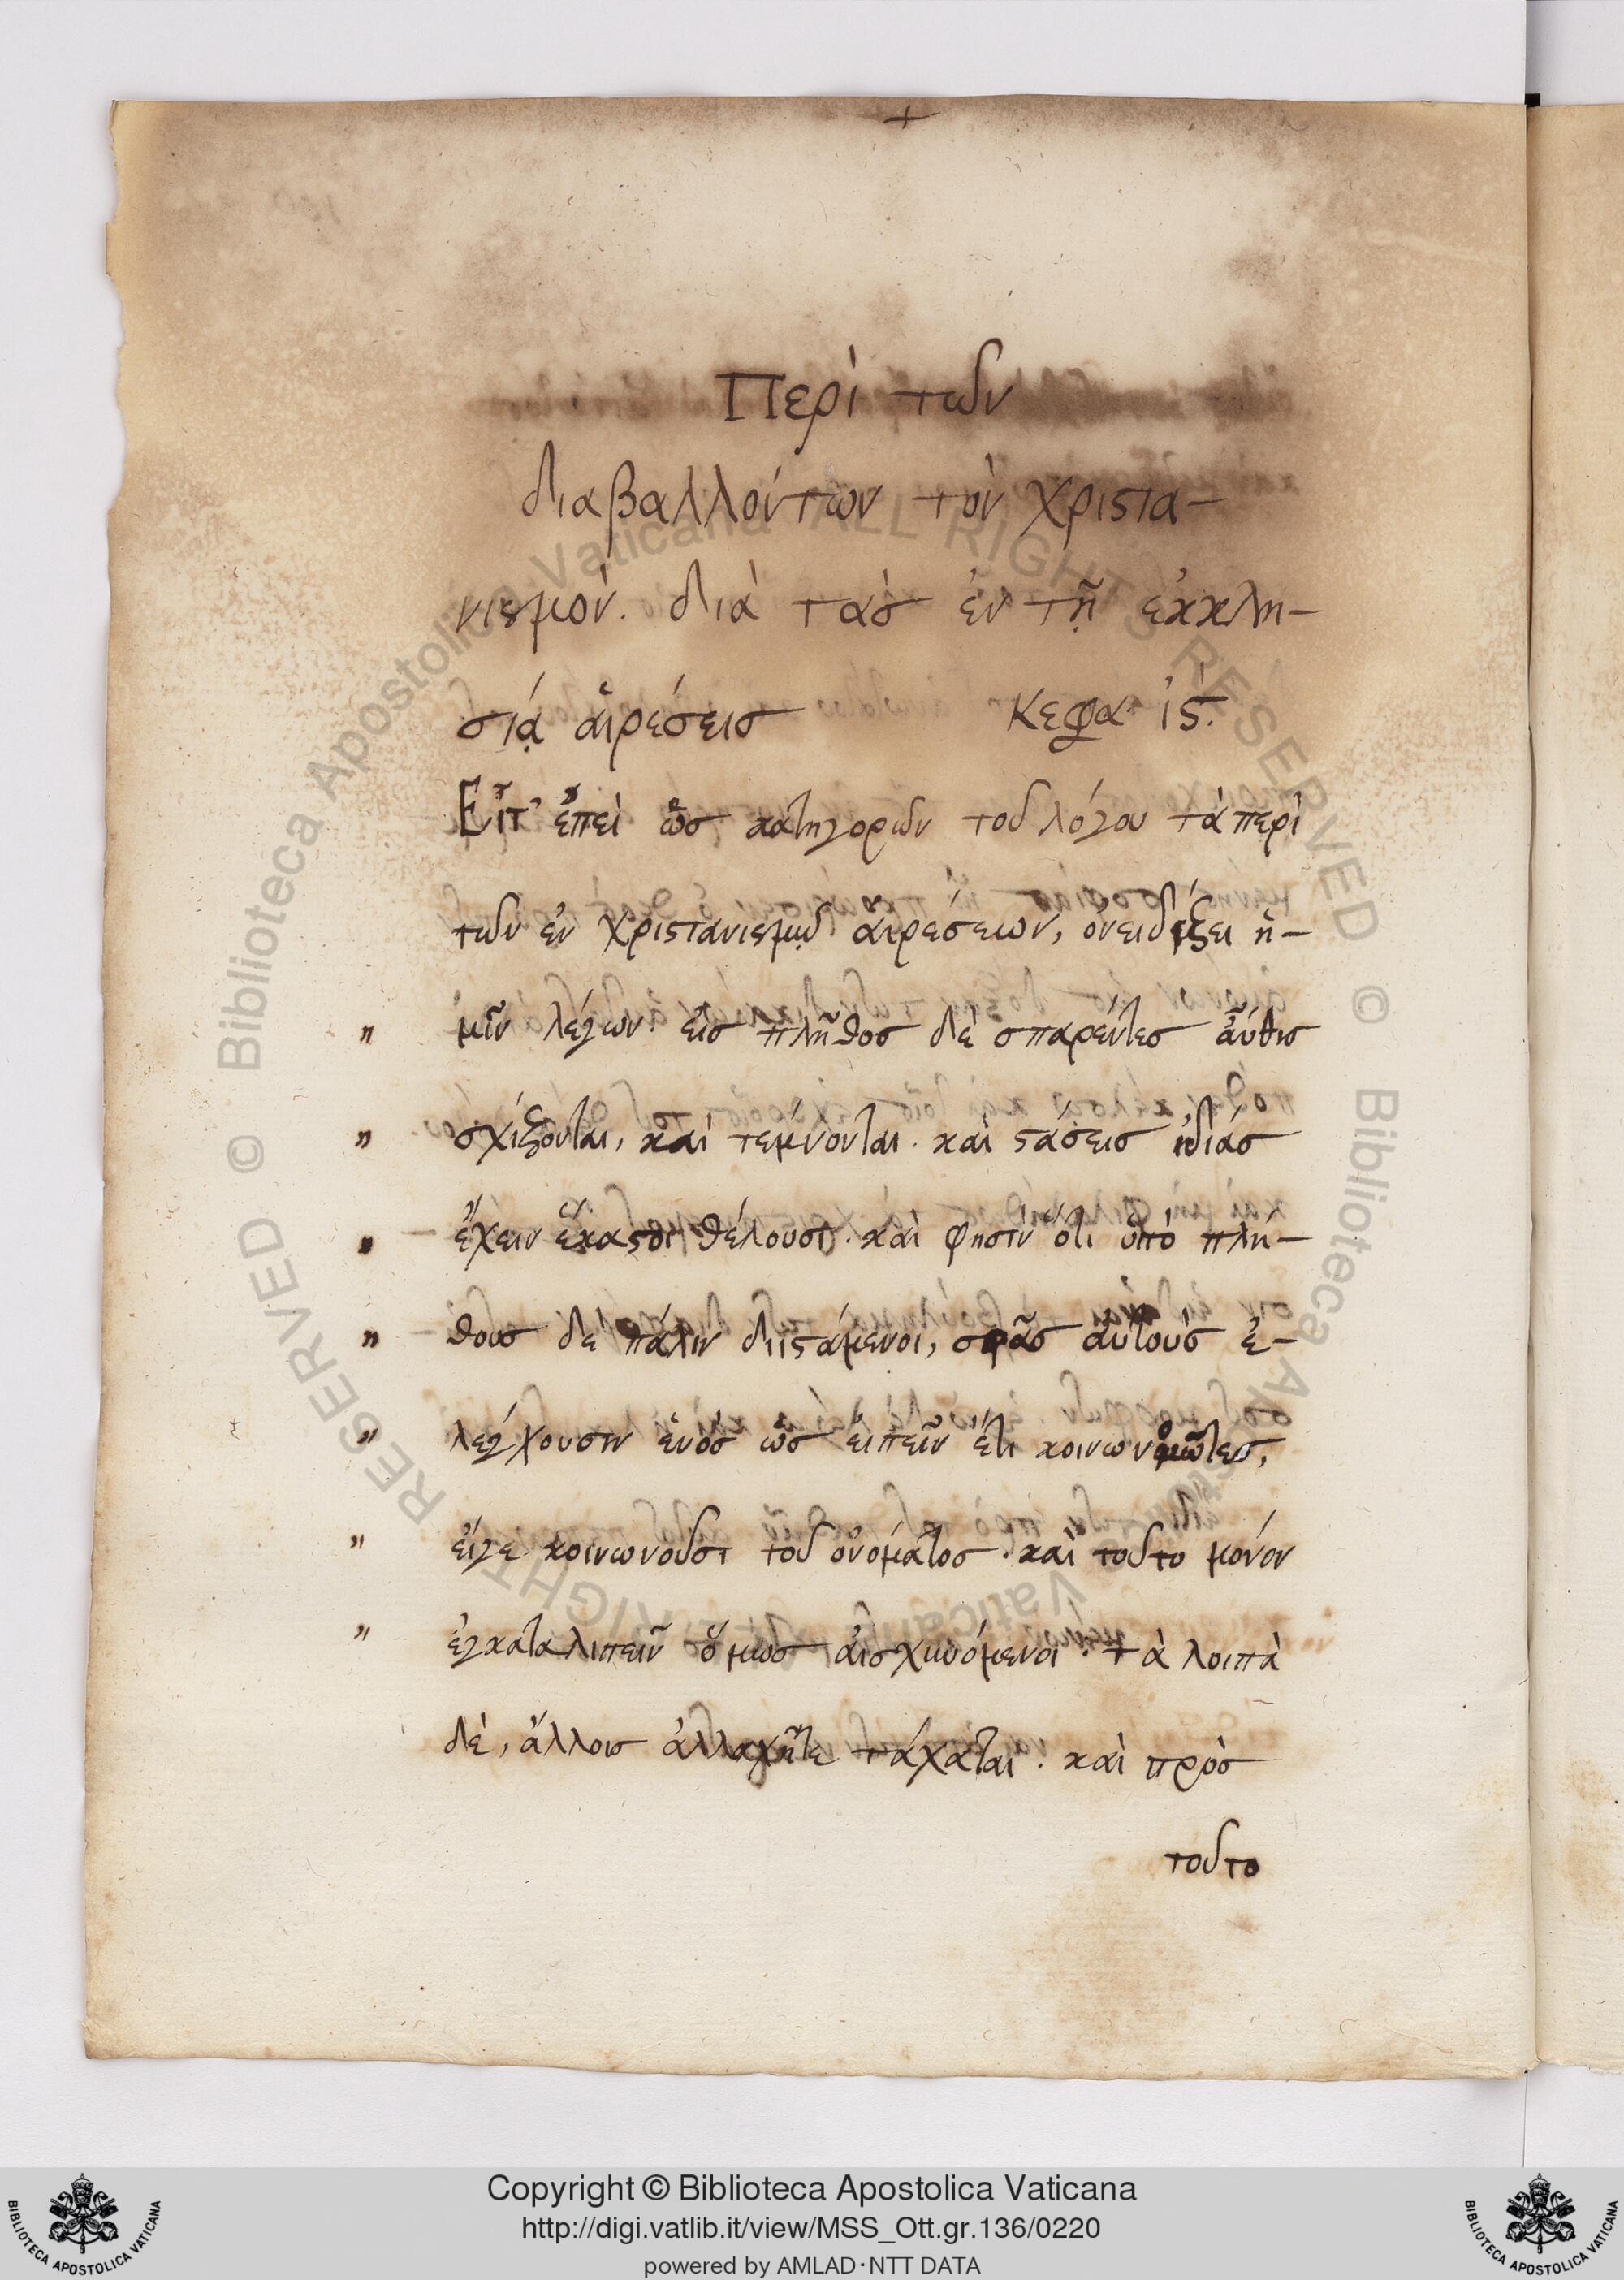 Περὶ τῶν
διαβαλλόντων τὸν χριστια-
νισμὸν. διὰ τὰς ἐν τῇ ἐκκλη-
σίᾳ αἱρέσεις Κεφα. ις.
Εἶτ' ἐπεὶ ὡς κατηγορῶν τοῦ λόγου τὰ περὶ
τῶν ἐν χριστανισμῷ αἱρέσεων, ὀνειδίζει ἡ-
" μῖν λέγων. εἰς πλῆθος δὲ σπαρέντες αὖθις
" σχίζονται, καὶ τέμνονται. καὶ στάσεις ἰδίας
" ἔχειν ἕκαστοι θέλουσι. καὶ φησὶν ὅτι ὑπὸ πλή-
" θους δὲ πάλιν διιστάμενοι, σφᾶς αὐτοὺς ἐ-
" λέγχουσιν ἑνὸς ὡς εἰπεῖν ἔτι κοινωνοῦντες,
" εἴγε κοινωνοῦσι τοῦ ὀνόματος. καὶ τοῦτο μόνον
" ἐγκαταλιπεῖν ὅμως αἰσχυνόμενοι. τὰ λοιπὰ
δὲ, ἄλλοις ἀλλαχῆτε τάχαται. καὶ πρὸς
τοῦτο
RESERVED © Biblioteca Apostolica Vaticana ALL RIGHTS RESERVED © Biblioteca Apostolica Vaticana ALL RIGHTS
BIBLIOTECA APOSTOLICA VATICANA
Copyright © Biblioteca Apostolica Vaticana
http://digi.vatlib.it/view/MSS_Ott.gr.136/0220
powered by AMLAD・NTT DATA
BIBLIOTECA APOSTOLICA VATICANA